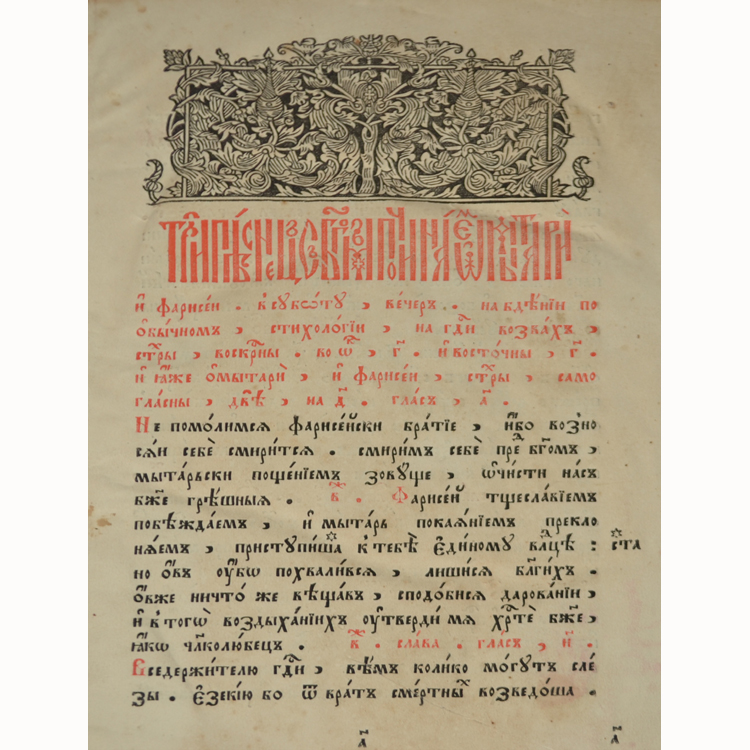 и҆ фарисе́и . в̾ субѡ́ту , ве́черъ . на бдѣ́нїи по
ѻ҆бы́чномъ , стихоло́гїи , на гд҇и возва́хъ ,
стх҇ры , воскр҇ны . во ѿ , г҃ . и҆ восто́чны , г҃ .
и҆ ꙗ҆́же ѻ҆ мытарѝ , и҆ фарисе́и , стх҇ры , само
гла́сны , двѣ̀ , на д҃ . гла́съ , а҃ .
Не помо́лимся фарисе́йски бра́тїе , и҆́бо возно
ся́и себѐ смири́тся . смири́мъ себѐ пред̾ бг҃омъ ,
мыта́рьски поще́нїемъ зову́ще , ѡ҆чи́сти на́съ
бж҃е грѣ́шныя . в҃ . Фарисе́й тщесла́вїемъ
побѣжда́емъ , и҆ мыта́рь покая́нїемъ прекло
ня́емъ , приступи́ша к̾ тебѣ̀ є҆ди́ному влⷣцѣ : ѻ҆́ста
но ѻ҆́въ ѹ҆́бѡ похвали́вся , лиши́ся благи́хъ .
ѻ҆́вже ничто́ же вѣща́въ , сподо́бися дарова́нїи ,
и҆ в̾ того̀ воздыха́нїихъ ѹ҆тверди́ мя хрⷭ҇тѐ бж҃е ,
ꙗ҆́кѡ чл҃колю́бецъ . в҃ . сла́ва . гла́съ , и҃ .
Вседержи́телю гд҇и , вѣ́мъ коли́ко мо́гутъ сле́
зы . є҆зекі́ю бо ѿ вра́тъ сме́ртныхъ возведо́ша .
а҃ а҃